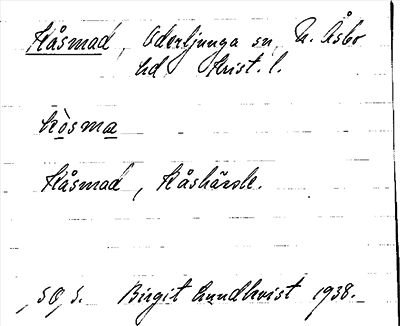 Kåsmad, Oderljunga sn, N. Åsbo
hd Krist. l.
kòsma
Kåsmad, Kåshärdle.
SO, S. Birgit Lundkvist 1938.